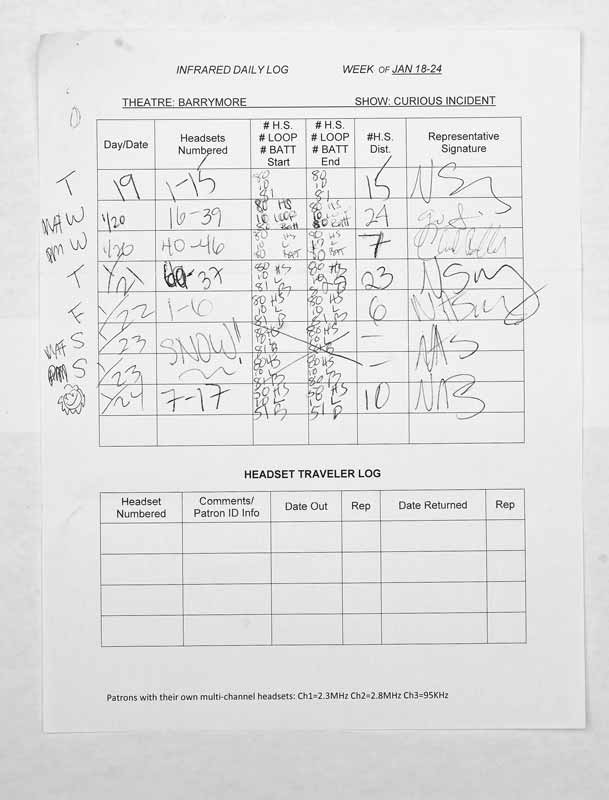 INFRARED DAILY LOG WEEK OF JAN 18-24
THEATRE: BARRYMORE SHOW: CURIOUS INCIDENT
Day/Date Headsets Numbered # H.S. # LOOP # BATT Start # H.S. # LOOP # BATT End #H.S. Dist. Representative Signature
T 19 1-15 80 10 81 80 10 81 15
MAT W 1/20 16-39 80 HS 10 LOOP 80 Batt 80 HS 10 LOOP 80 Batt 24
PM W 1/20 40-46 80 HS 10 L 80 BATT 80 HS 10 L 80 BATT 7
T 1/21 -37 80 HS 10 L 81 B 80 HS 10 L 23
F 1/22 1-6 80 HS 10 L 81 B 80 HS 10 L 81 B 6
MAT S 1/23 SNOW!! 80 HS 10 L 81 B 80 HS 10 L 81 B - NAS
PM S 1/23 80 HS 10 L 81 B 80 HS 10 L 81 B -
1/24 7-17 50 HS 10 L 51 B 50 HS 10 L 51 B 10 NAS
HEADSET TRAVELER LOG
Headset Numbered Comments/ Patron ID Info Date Out Rep Date Returned Rep
Patrons with their own multi-channel headsets: Ch1=2.3MHz Ch2=2.8MHz Ch3=95KHz